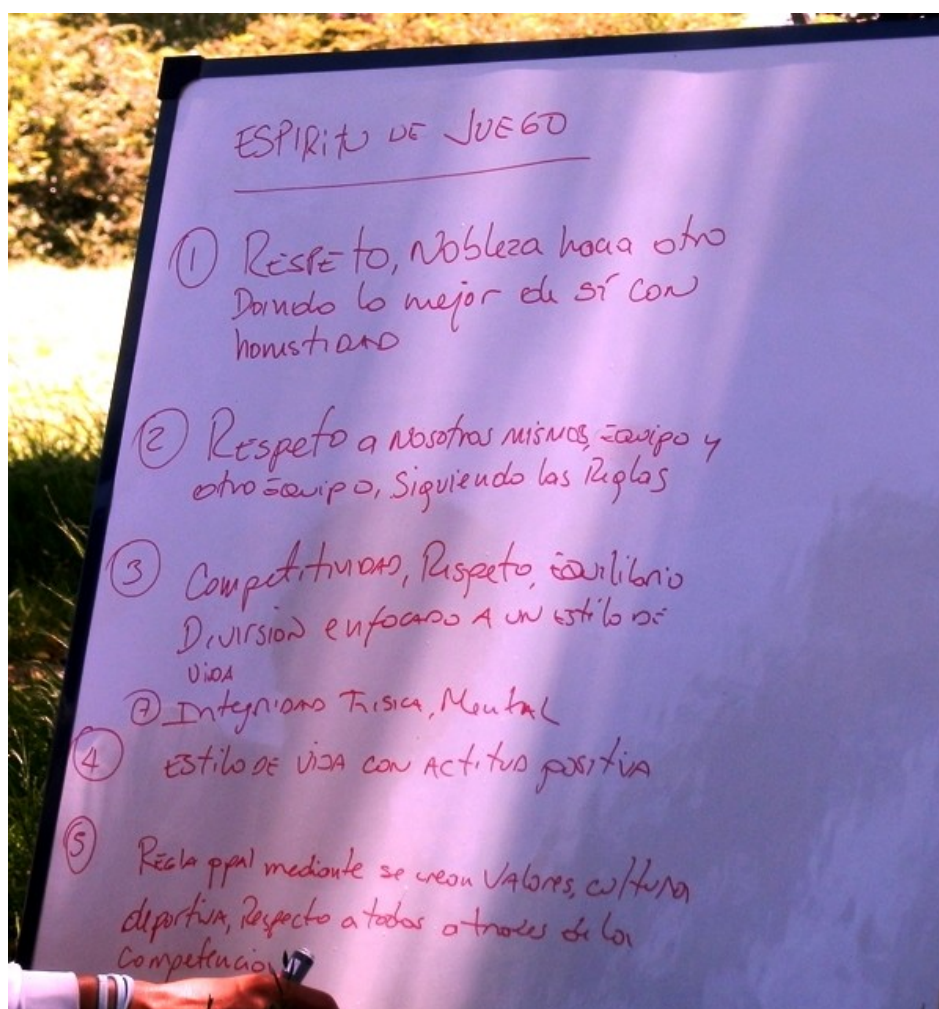 ESPIRITU DE JUEGO
① RESPETO, Nobleza hacia otro
Dando lo mejor de sí CON
honestidad
② Respeto a Nosotros mismos, Equipo y
otro Equipo, Siguiendo las Reglas
③ Competitividad, Respeto, Equilibrio
Diversión enfocado A un estilo DE
VIDA
⑦ Integridad Fisica, Mental
④ Estilo DE VIDA CON ACtitud positiva
⑤ Regla ppal mediante se crean Valores, cultura
deportiva, Respecto a todos a traves de la
Competencia